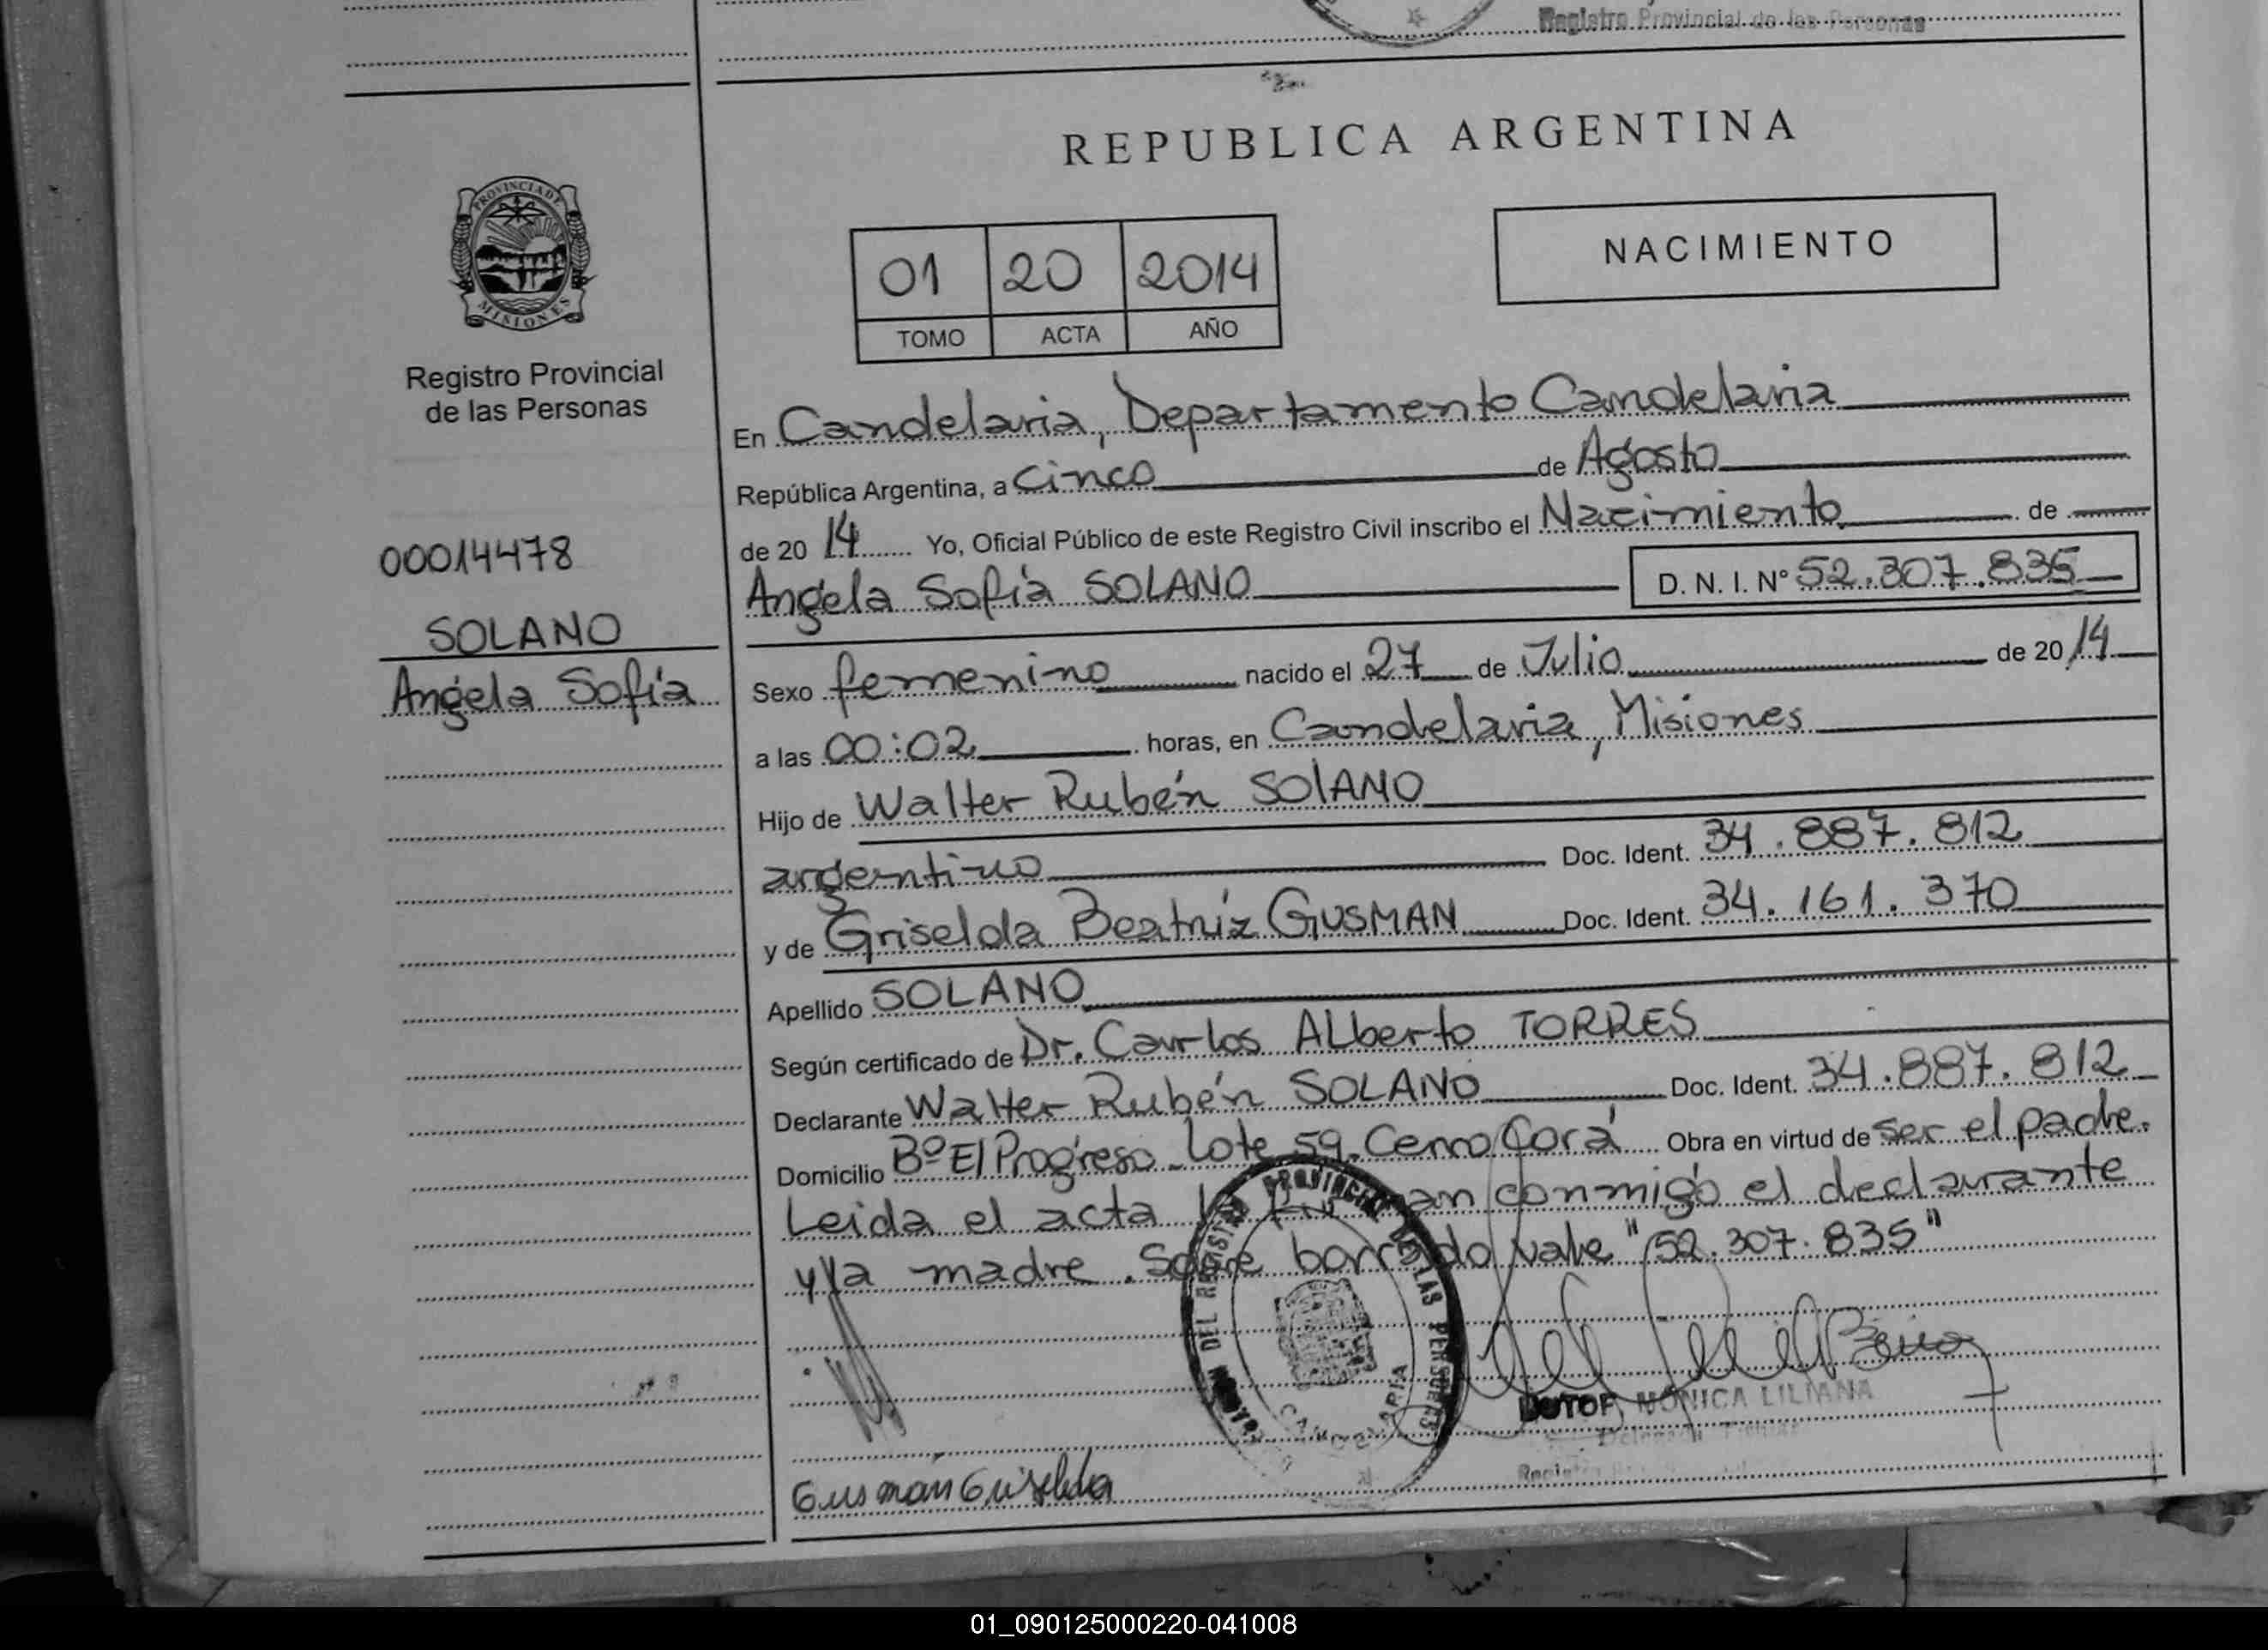 Registro Provincial de las Personas
REPUBLICA ARGENTINA
PROVINCIA DE
MISIONES
Registro Provincial
de las Personas
01 20 2014
TOMO ACTA AÑO
NACIMIENTO
En Candelaria, Departamento Candelaria
República Argentina, a Cinco de Agosto
de 20 14 Yo, Oficial Público de este Registro Civil inscribo el Nacimiento de
00014478
Angela Sofía SOLANO D. N. I. Nº 52.307.835
SOLANO
Angela Sofía
Sexo femenino nacido el 27 de Julio de 20 14
a las 00:02 horas, en Candelaria, Misiones
Hijo de Walter Rubén SOLANO
argentino Doc. Ident. 34.887.812
y de Griselda Beatríz GUSMAN Doc. Ident. 34.161.370
Apellido SOLANO
Según certificado de Dr. Carlos ALberto TORRES
Declarante Walter Rubén SOLANO Doc. Ident. 34.887.812
Domicilio Bº El Progreso Lote 59. Cerro Corá Obra en virtud de ser el padre.
Leida el acta la firman conmigo el declarante
y la madre. Sobre borrado vale "52.307.835"
DEL REGISTRO PROVINCIAL DE LAS PERSONAS
CANDELARIA
MONICA LILIANA
Gusman Griselda
01_090125000220-041008